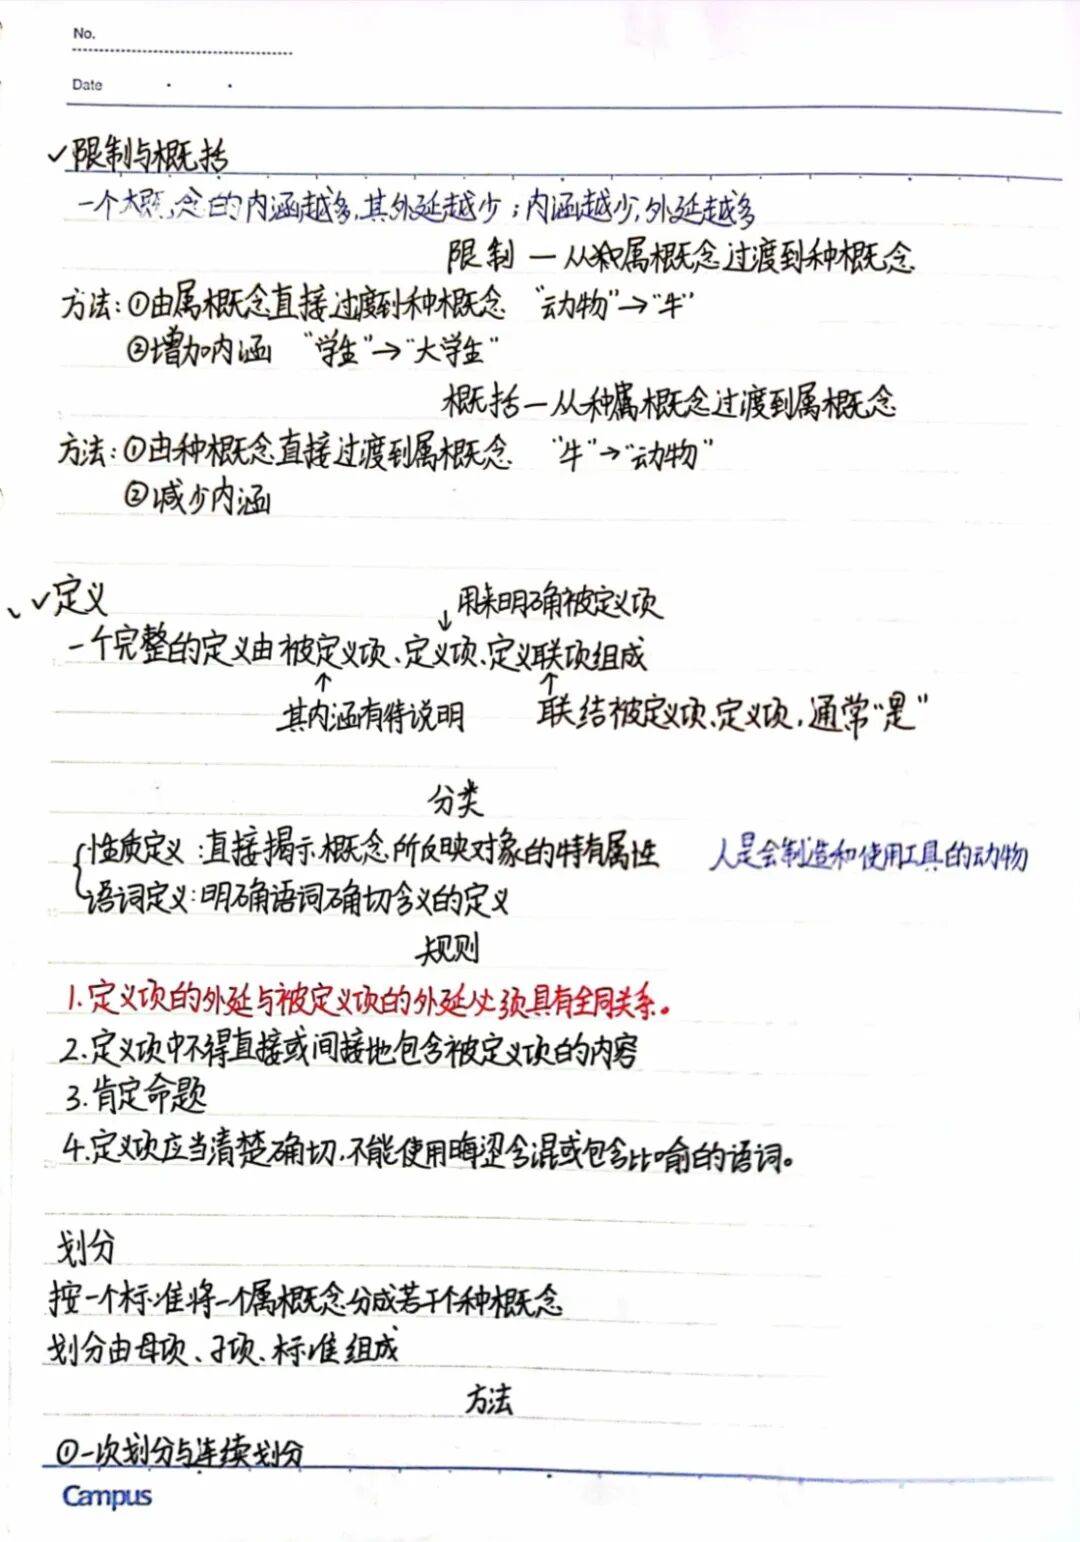 No.
Date
✓限制与概括
一个概念的内涵越多,其外延越少；内涵越少,外延越多
限制—从属概念过渡到种概念
方法:①由属概念直接过度到种概念 “动物”→“牛”
②增加内涵 “学生”→“大学生”
概括—从种概念过渡到属概念
方法:①由种概念直接过渡到属概念 “牛”→“动物”
②减少内涵
✓定义
↓用来明确被定义项
一个完整的定义由被定义项、定义项、定义联项组成
↑ ↑
其内涵有待说明 联结被定义项、定义项,通常“是”
分类
{性质定义:直接揭示概念所反映对象的特有属性 人是会制造和使用工具的动物
语词定义:明确语词确切含义的定义
规则
1.定义项的外延与被定义项的外延必须具有全同关系。
2.定义项中不得直接或间接地包含被定义项的内容
3.肯定命题
4.定义项应当清楚确切,不能使用晦涩含混或包含比喻的语词。
划分
按一个标准将一个属概念分成若干个种概念
划分由母项、子项、标准组成
方法
①一次划分与连续划分
Campus